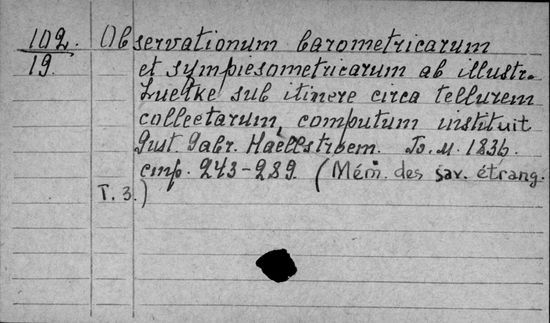 102. Observationum barometricarum
19. et sympiesometricarum ab illustr.
Luetke sub itinere circa tellurem
collectarum, computum instituit
Gust. Gabr. Haellstroem. Ts. u. 1836.
стр. 243-289. (Mém. des sav. étrang.
T. 3.)